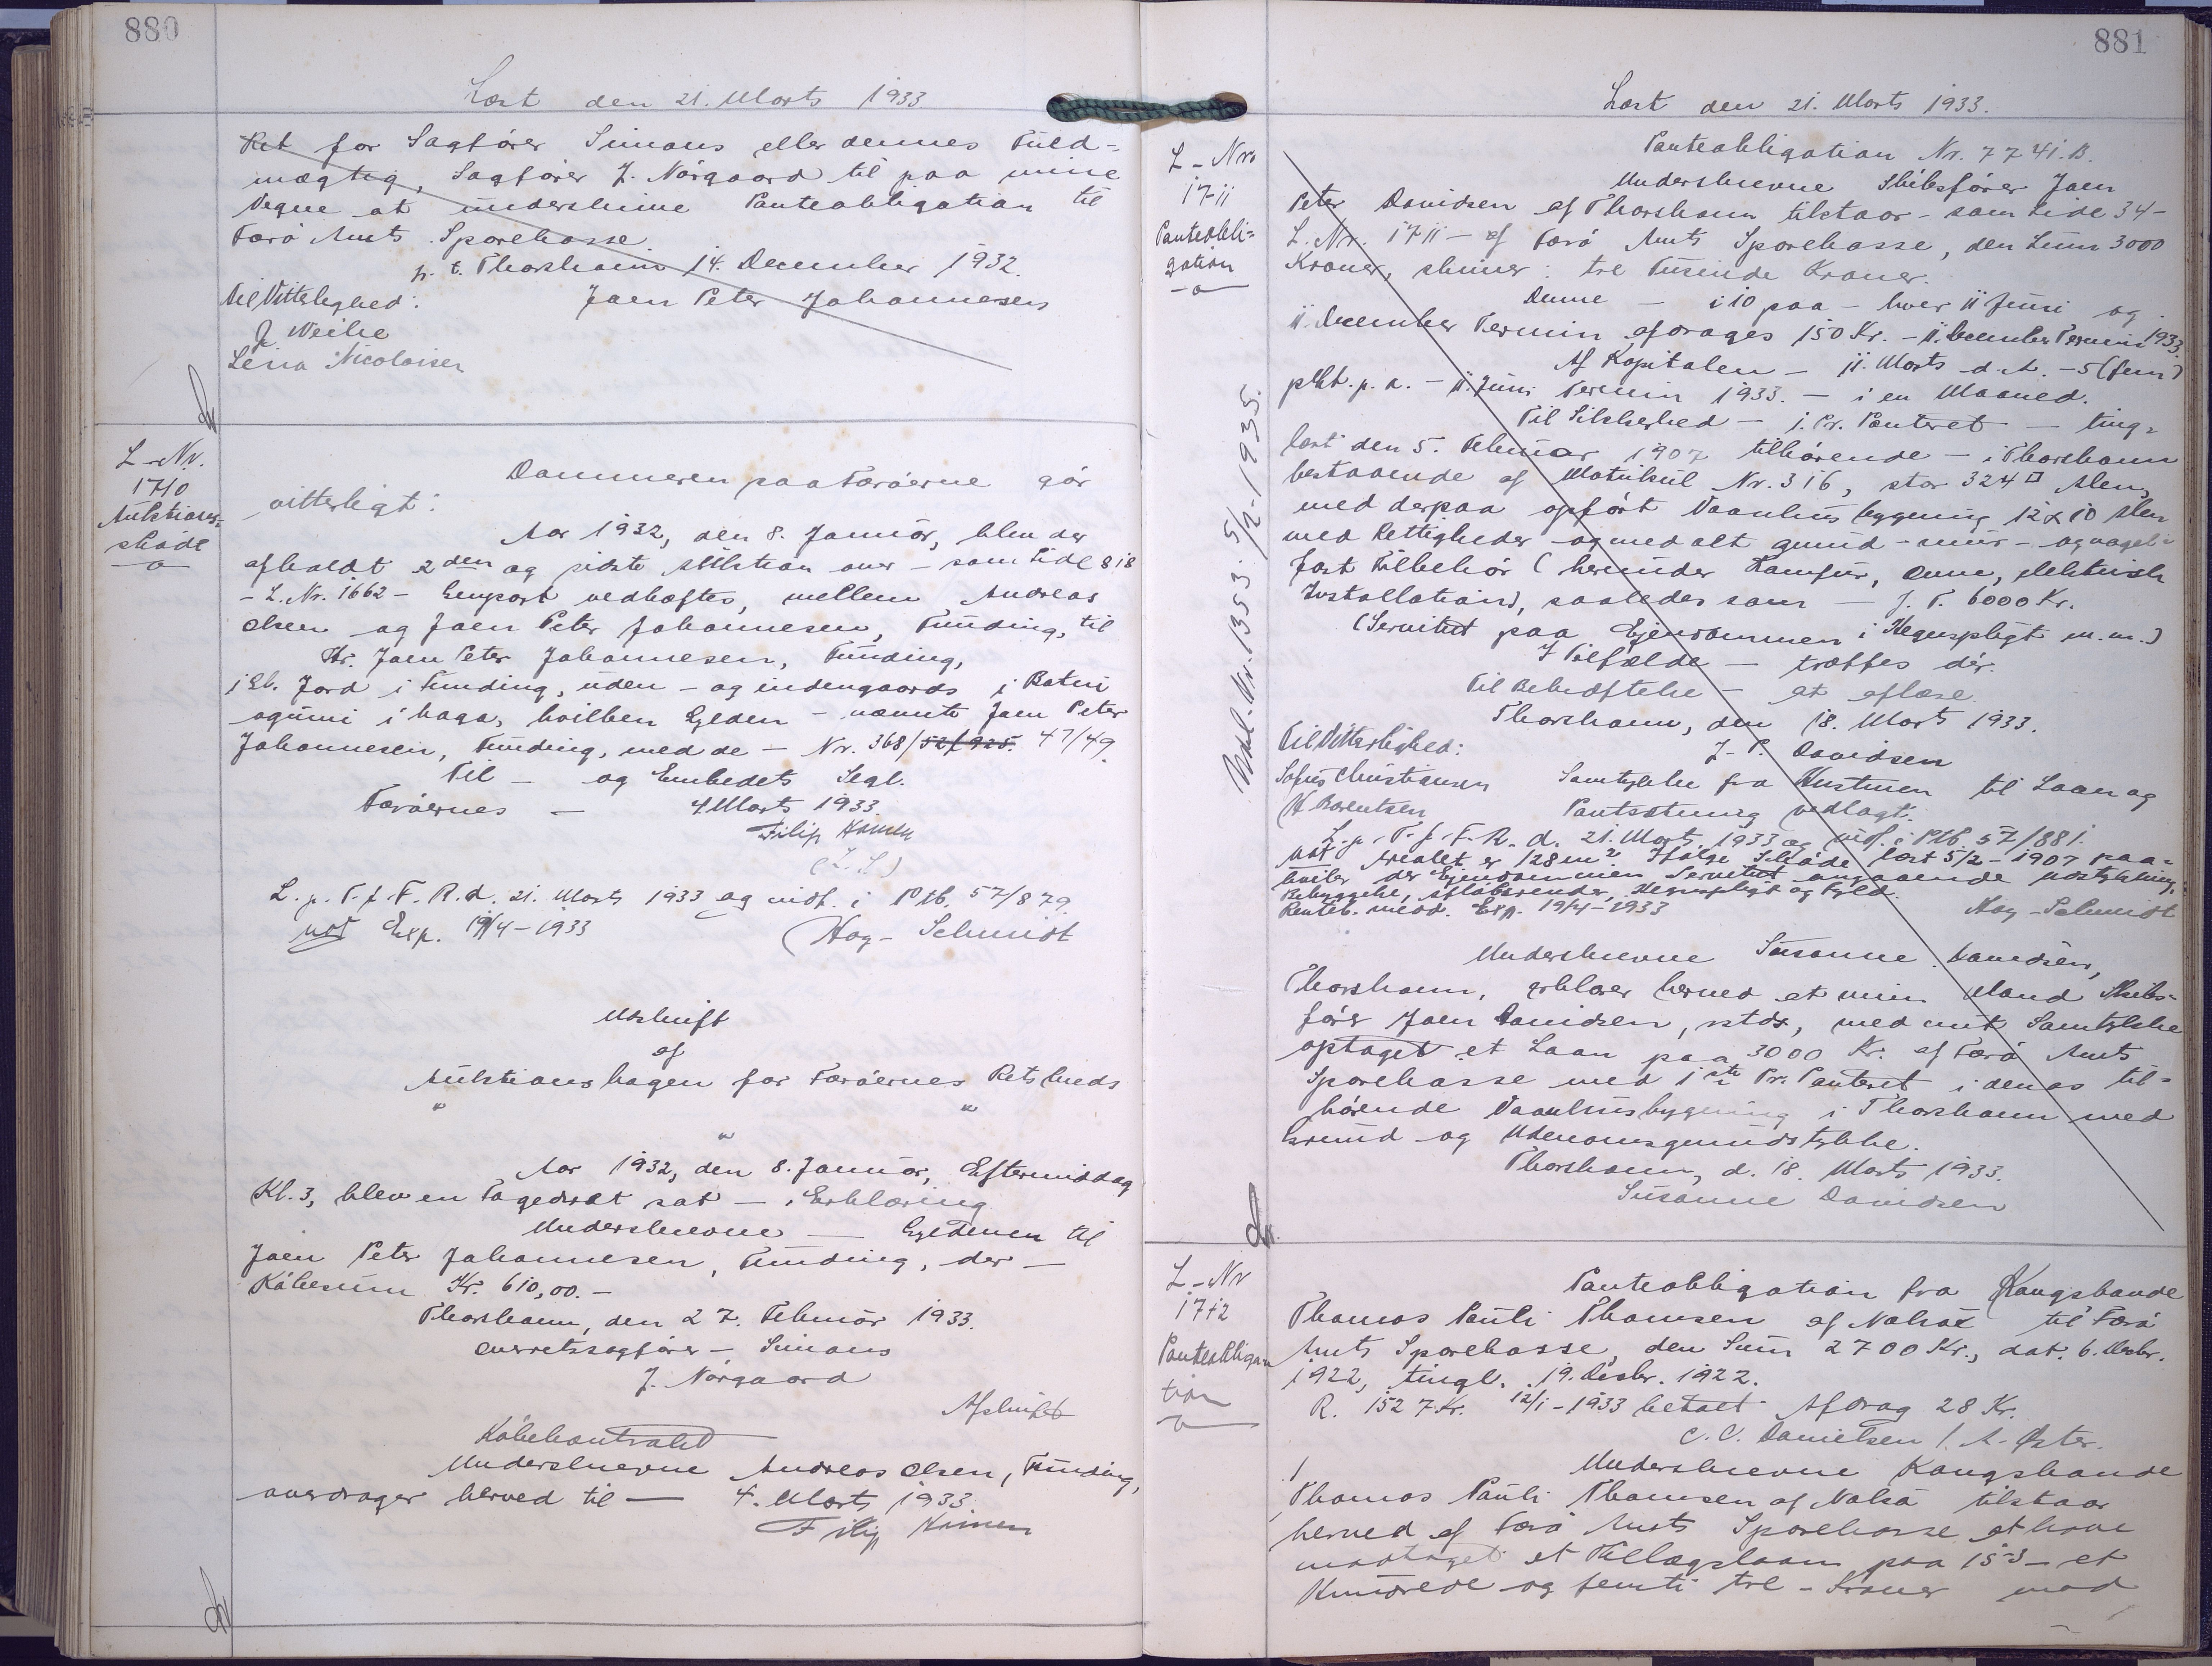 880
Læst den 21. Marts 1933
Ret for Sagfører Simons eller dennes Fuld-
mægtig, Sagfører J. Nørgaard til paa mine
Vegne at underskrive Panteobligation til
Færø Amts Sparekasse.
p. t. Thorshavn 14. December 1932.
Til Vitterlighed: Joen Peter Johannesen
J Weihe
Lena Nicolaisen
L-Nr.
1710
Auktions-
skøde
Dommeren paa Færøerne gør
vitterligt:
Aar 1932, den 8. Januar, blev der
afholdt 2den og sidste Auktion over - som Side 818
- L. Nr. 1662 - Genpart vedhæftes, mellem Andreas
Olsen og Joen Peter Johannesen, Funding, til
Hr. Joen Peter Johannesen, Funding,
j Gl. Jord i Funding, uden - og indengaards i Botni
ogumi i haga, hvilken Ejeden - nævnte Joen Peter
Johannesen, Funding, med de - Nr. 368/52/925. 47/49.
Til - og Embedets Segl.
Færøernes - 4 Marts 1933
Filip
(L.S.)
L. p. T. f. F. R. d. 21. Marts 1933 og indf. i Ptb. 57/879.
not Exp. 19/4-1933 Hag-Schmidt
Udskrift
af
Auktionsbogen for Færøernes Retskreds
" "
"
Aar 1932, den 8. Januar, Eftermiddag
Kl. 3, blev en Fogedret sat - , Erklæring
Underskrevne - Ejedmen til
Joen Peter Johannesen, Funding, der -
Købesum Kr. 610,00.-
Thorshavn, den 27. Februar 1933.
Overretssagfører - Simons
J. Nørgaard
Afskrift
Købekontrakt
Underskrevne Andreas Olsen, Funding,
overdrager herved til - 4. Marts 1933.
Filip
881
Læst den 21. Marts 1933.
L-Nr.
1711
Panteobli-
gation
Panteobligation Nr. 7741.B.
Underskrevne Skibsfører Joen
Peter Davidsen af Thorshavn tilstaar - som Side 34 -
L. Nr. 1711 - af Færø Amts Sparekasse, den Sum 3000
Kroner, skriver: tre Tusinde Kroner.
Denne - i 10 paa - hver 11 Juni og
11. December Termin afdrages 150 Kr. - 11. December Termin 1933.
Af Kapitalen - 11. Marts d. A. - 5 (fem)
pCt. p. a. - 11. Juni Termin 1933. - i en Maaned.
Til Sikkerhed - 1. Pr. Panteret - ting-
læst den 5. Februar 1907 tilhørende - i Thorshavn
bestaaende af Matrikul Nr. 316, stor 324 □ Alen,
med derpaa opført Vaanhusbygning 12 x 10 Alen
med Rettigheder - og med alt grund - mur - og nagel-
fast Tilbehør (herunder Komfur, Ovne, elektrisk
Installation), saaledes som - J. P. 6000 Kr.
(Servitut paa Ejendommen i Hegnspligt m.m.)
I Tilfælde - træffes dér.
Til Bekræftelse - at aflæse.
Thorshavn, den 18. Marts 1933.
Til Vitterlighed: J. P. Davidsen
Sofus Christiansen Samtykke fra Hustruen til Laan og
H Barentsen Pantsætning vedlagt.
L. p. T. f. F. R. d. 21. Marts 1933 og indf. i Ptb. 57/881.
not Arealet er 128 m². Ifølge Skøde læst 5/2-1907 paa-
hviler der Ejendommen Servitut angaaende Udstykning,
Bebyggelse, Afløbsrender, Hegnspligt og Fyld.
Panteb. medd. Exp. 19/4-1933 Hag-Schmidt
Udsl. Nr. 1353. 5/12-1935.
Underskrevne Susanne Davidsen,
Thorshavn, erklærer herved at min Mand Skibs-
fører Joen Davidsen, sstds, med mit Samtykke
optaget et Laan paa 3000 Kr. af Færø Amts
Sparekasse med 1ste Pr. Panteret i denas til-
hørende Vaanhusbygning i Thorshavn med
Grund og Udenomsgrundstykke.
Thorshavn, d. 18. Marts 1933.
Susanne Davidsen
L-Nr
1712
Panteobliga
tion
Panteobligation fra Kongsbonde
Thomas Pauli Thomsen af Nolsø til Færø
Amts Sparekasse, den Sum 2700 Kr., dat. 6. Decbr.
1922, tingl. 19. Decbr. 1922.
R. 1527 Kr. 12/1-1933 betalt Afdrag 28 Kr.
C. C. Danielsen /. A. Øster.
Underskrevne Kongsbonde
Thomas Pauli Thomsen af Nolsø tilstaar
herved af Færø Amts Sparekasse at have
modtaget et Tillægslaan paa 153 - et
Hundrede og femti tre - Kroner mod